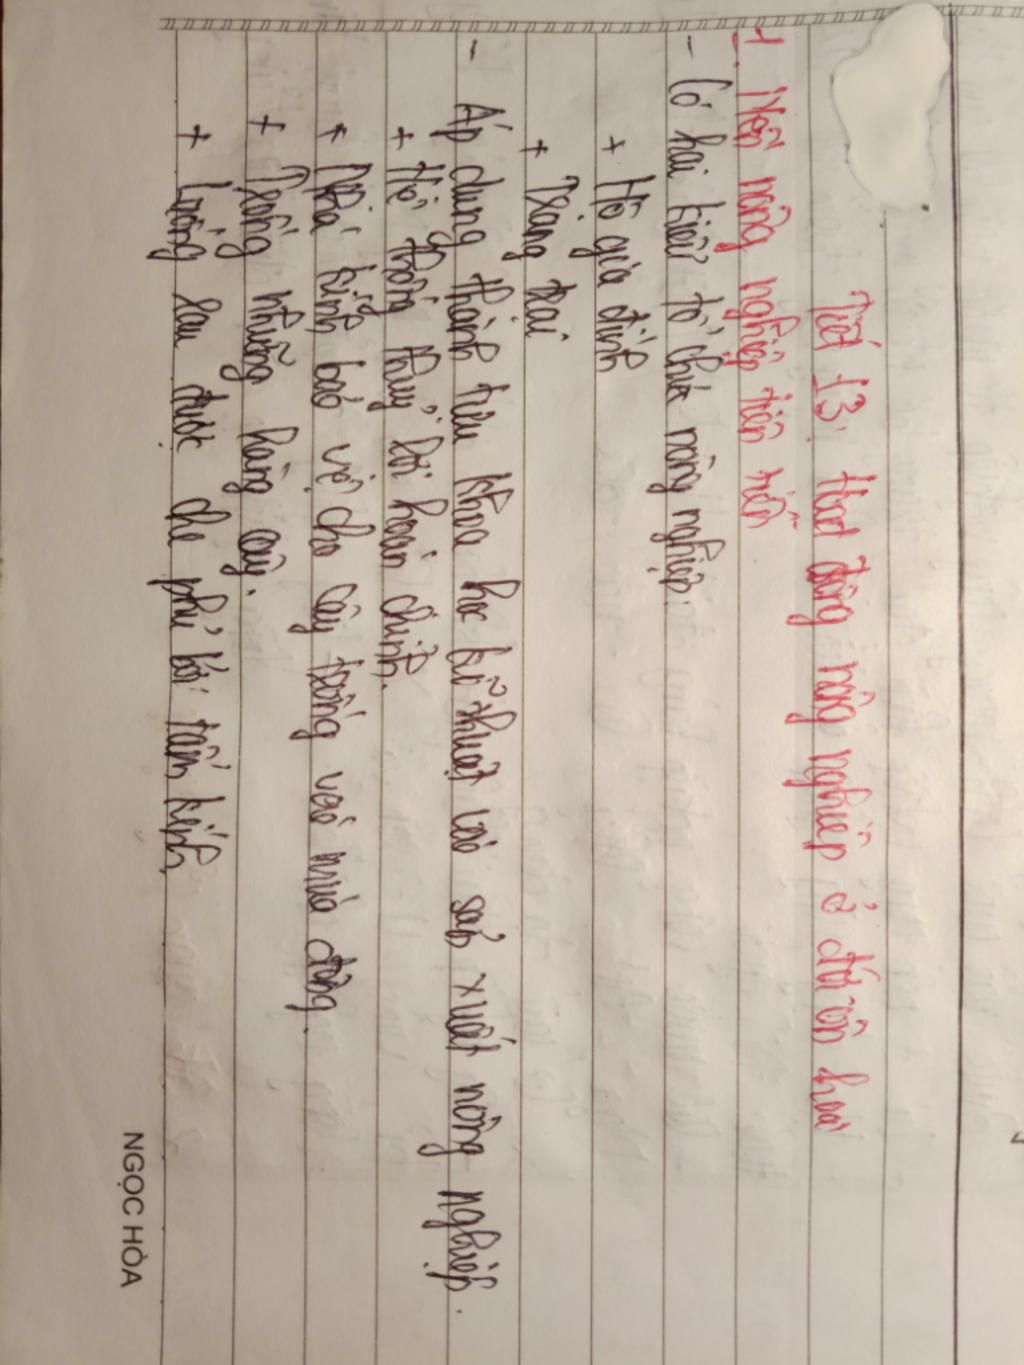 Tiết 13: Hoạt động nông nghiệp ở đới ôn hoà
1. Nền nông nghiệp tiên tiến
- Có hai kiểu tổ chức nông nghiệp:
+ Hộ gia đình
+ Trang trại
- Áp dụng thành tựu khoa học kĩ thuật vào sản xuất nông nghiệp.
+ Hệ thống thuỷ lợi hoàn chỉnh.
+ Nhà kính bảo vệ cho cây trồng vào mùa đông.
+ Trồng những hàng cây.
+ Luống rau được che phủ bởi tấm kính.
NGỌC HÒA